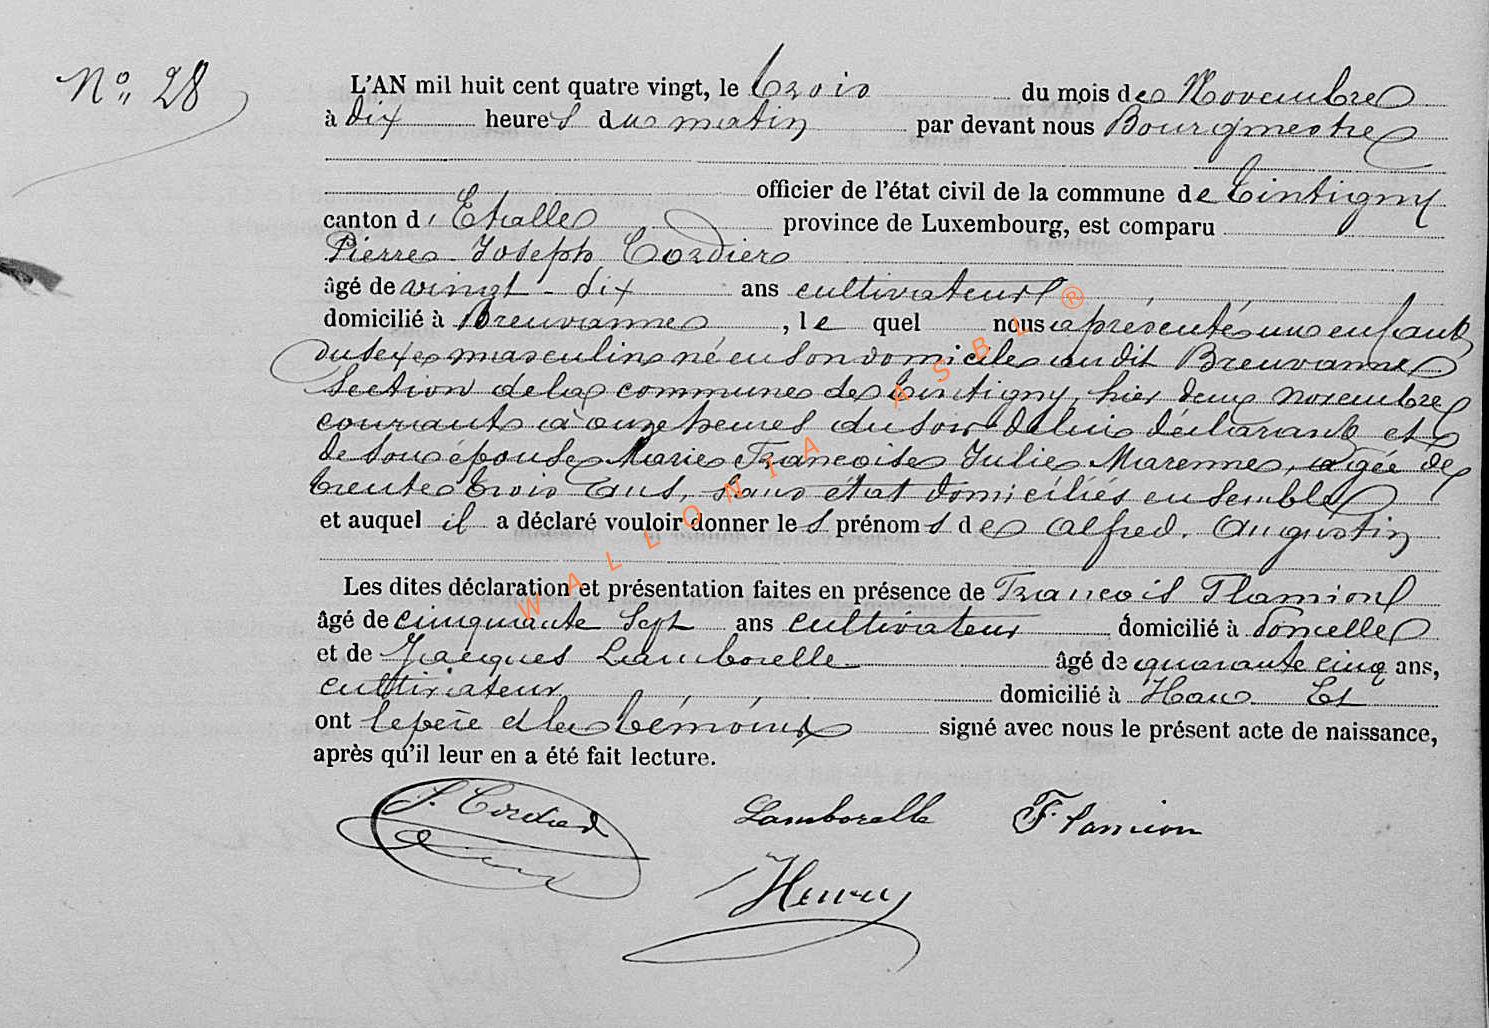 N° 28
L'AN mil huit cent quatre vingt, le trois du mois de Novembre
à dix heures du matin par devant nous Bourgmestre
officier de l'état civil de la commune de Tintigny
canton d'Etalle province de Luxembourg, est comparu
Pierre Joseph Cordier
âgé de vingt-dix ans cultivateur
domicilié à Breuvanne, le quel nous a présenté un enfant
du sexe masculin né en son domicile au dit Breuvanne
section de la commune de Tintigny, hier deux novembre
courant à onze heures du soir de lui déclarant et
de son épouse Marie Françoise Julie Marenne, agée de
trente trois ans, sans état domiciliés ensemble
et auquel il a déclaré vouloir donner les prénoms de Alfred. Augustin
Les dites déclaration et présentation faites en présence de François Flamion
âgé de cinquante sept ans cultivateur domicilié à
et de Jacques Lamborelle âgé de quarante cinq ans,
cultivateur domicilié à Han Et
ont le père et les témoins signé avec nous le présent acte de naissance,
après qu'il leur en a été fait lecture.
Cordier Lamborelle F. Flamion
Henry
WALLONIA ASBL ®